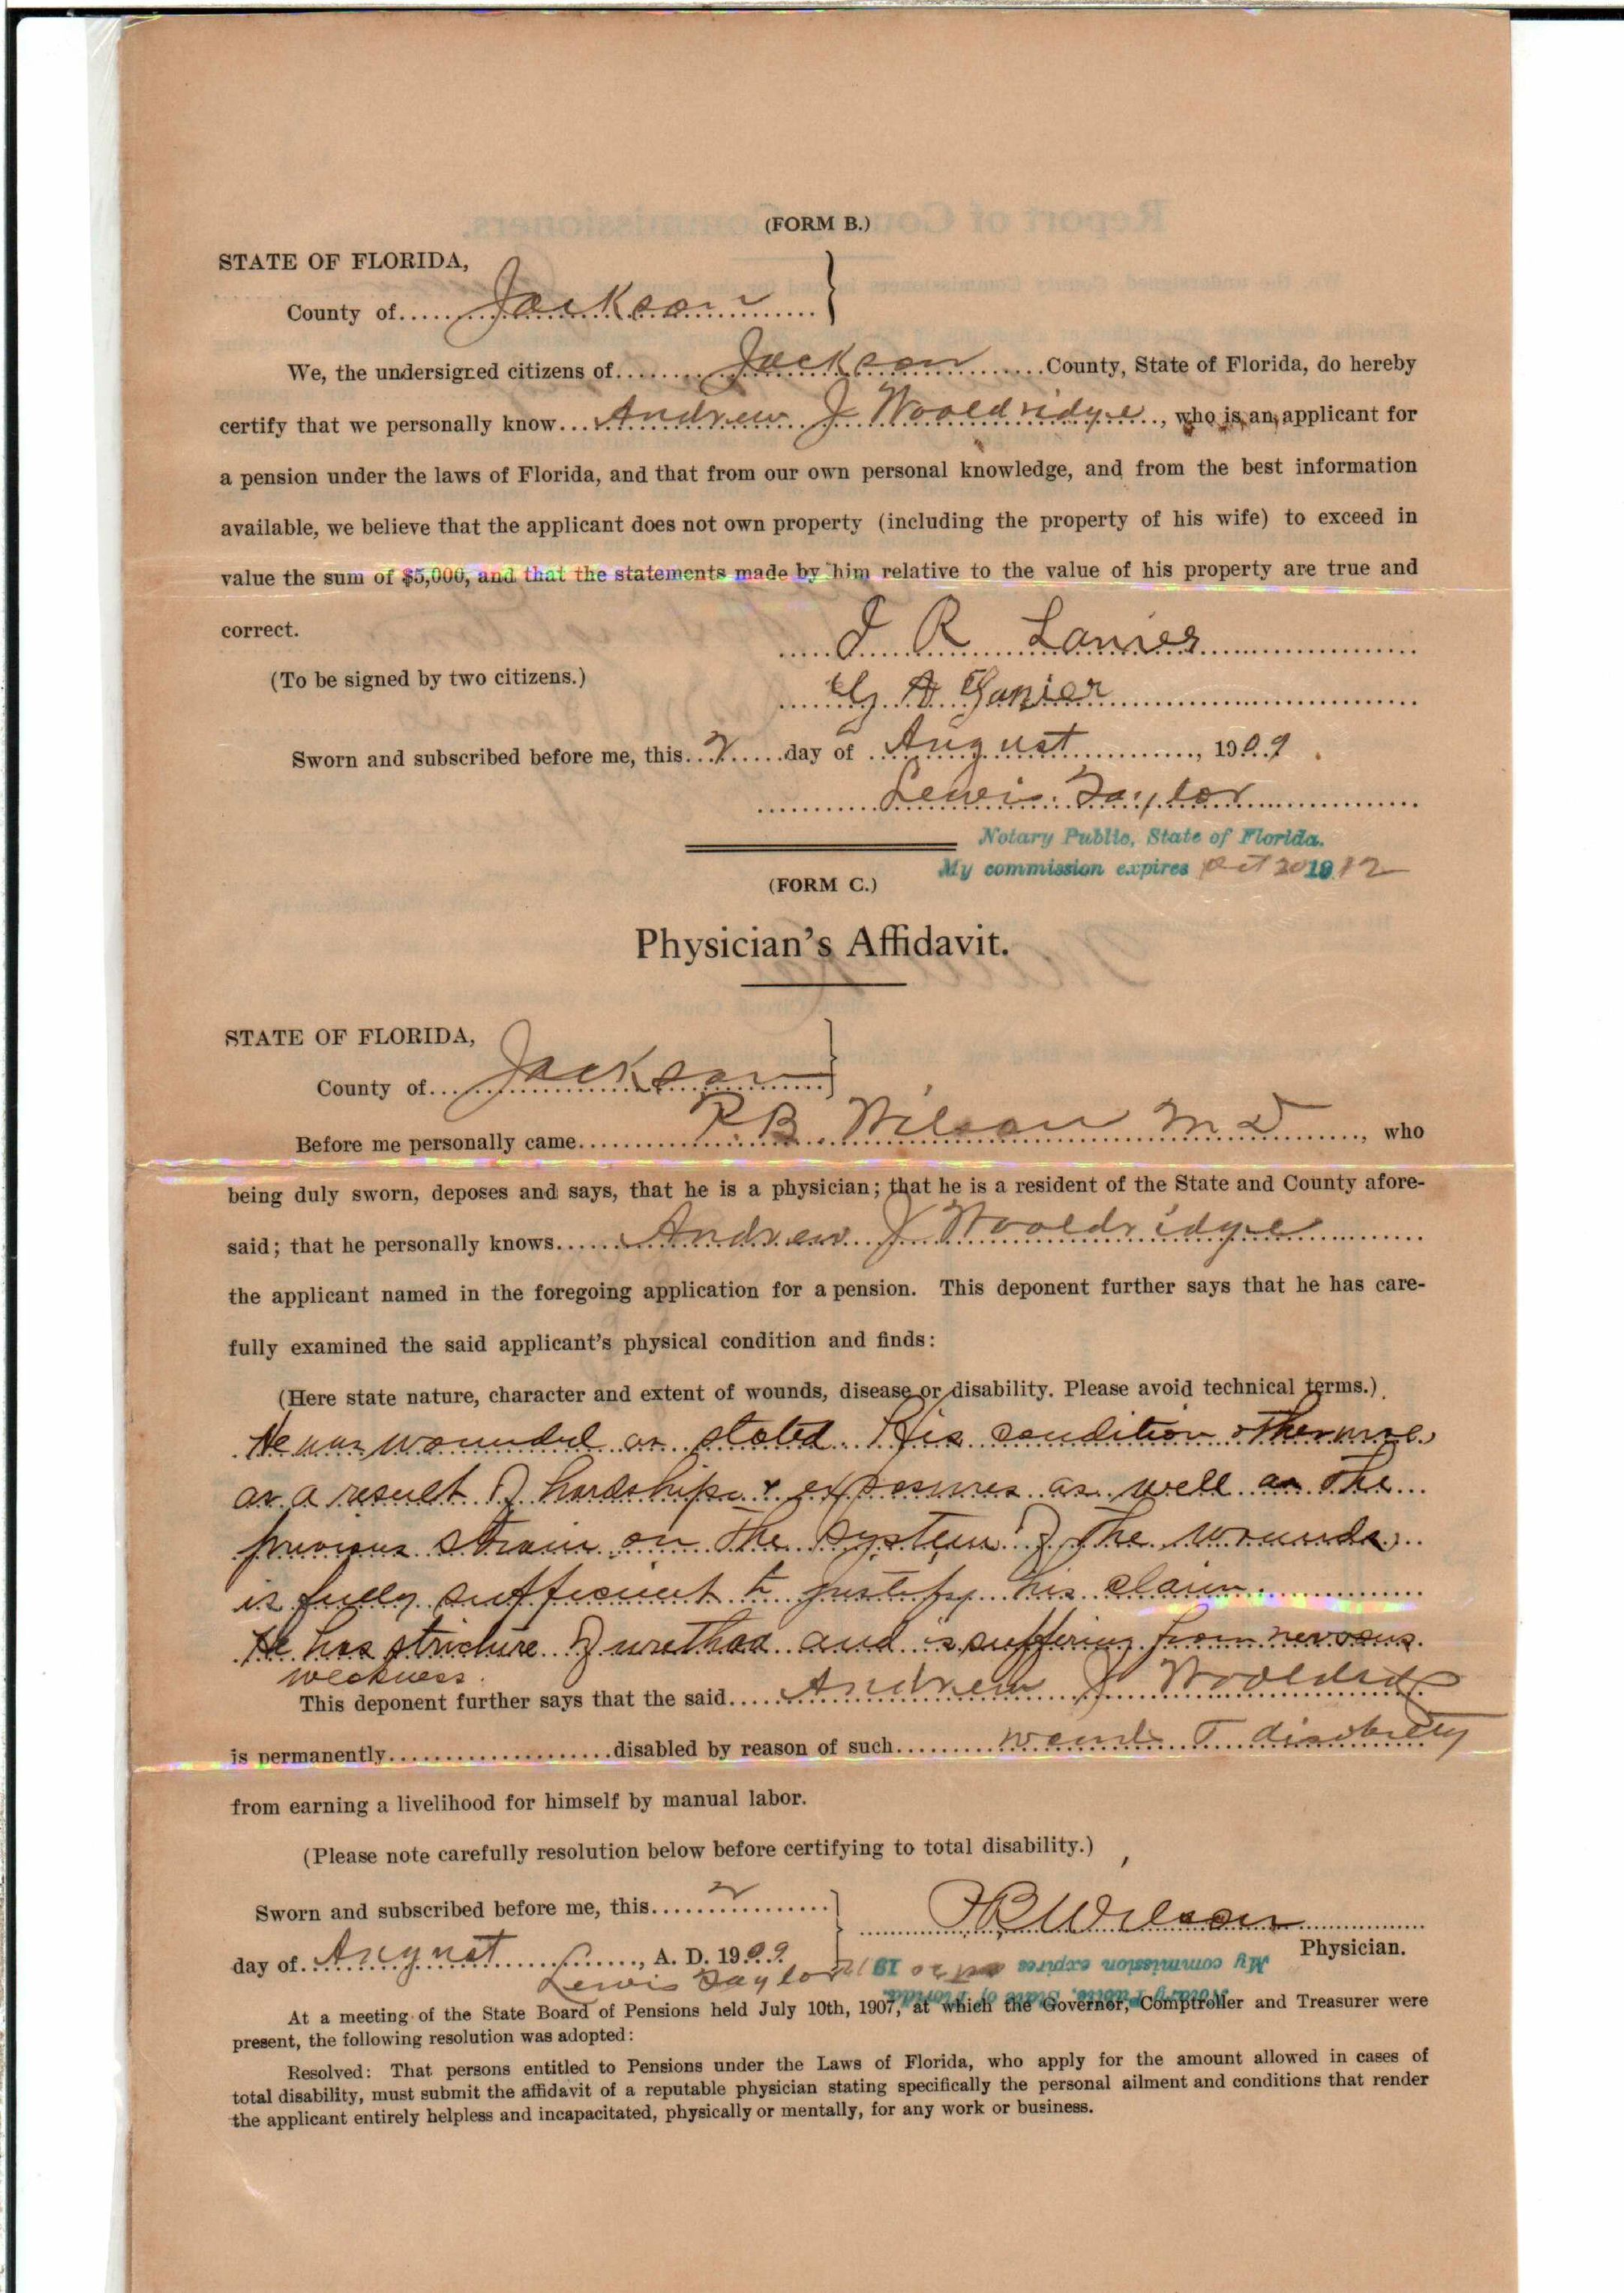 (FORM B.)
STATE OF FLORIDA,
County of Jackson }
We, the undersigned citizens of Jackson County, State of Florida, do hereby
certify that we personally know Andrew J Wooldridge, who is an applicant for
a pension under the laws of Florida, and that from our own personal knowledge, and from the best information
available, we believe that the applicant does not own property (including the property of his wife) to exceed in
value the sum of $5,000, and that the statements made by him relative to the value of his property are true and
correct.
J R Lanier
(To be signed by two citizens.)
G A
Sworn and subscribed before me, this 2 day of August, 1909.
Lewis Taylor
Notary Public, State of Florida.
My commission expires Oct 20 1912
(FORM C.)
Physician's Affidavit.
STATE OF FLORIDA,
County of Jackson }
Before me personally came R.B. Wilson M D, who
being duly sworn, deposes and says, that he is a physician; that he is a resident of the State and County afore-
said; that he personally knows Andrew J Wooldridge
the applicant named in the foregoing application for a pension. This deponent further says that he has care-
fully examined the said applicant's physical condition and finds:
(Here state nature, character and extent of wounds, disease or disability. Please avoid technical terms.)
He was wounded as stated. His condition otherwise,
as a result of hardships & exposures as well as the
previous strain on the system of the wounds,
is fully sufficient to justify his claim
He has stricture of urethra and is suffering from nervous
weakness.
This deponent further says that the said Andrew J
is permanently disabled by reason of such disability
from earning a livelihood for himself by manual labor.
(Please note carefully resolution below before certifying to total disability.)
Sworn and subscribed before me, this 2 }
RB Wilson
day of August, A. D. 1909
Physician.
Lewis Taylor
My commission expires Oct 20 1912
Notary Public, State of Florida.
At a meeting of the State Board of Pensions held July 10th, 1907, at which the Governor, Comptroller and Treasurer were
present, the following resolution was adopted:
Resolved: That persons entitled to Pensions under the Laws of Florida, who apply for the amount allowed in cases of
total disability, must submit the affidavit of a reputable physician stating specifically the personal ailment and conditions that render
the applicant entirely helpless and incapacitated, physically or mentally, for any work or business.